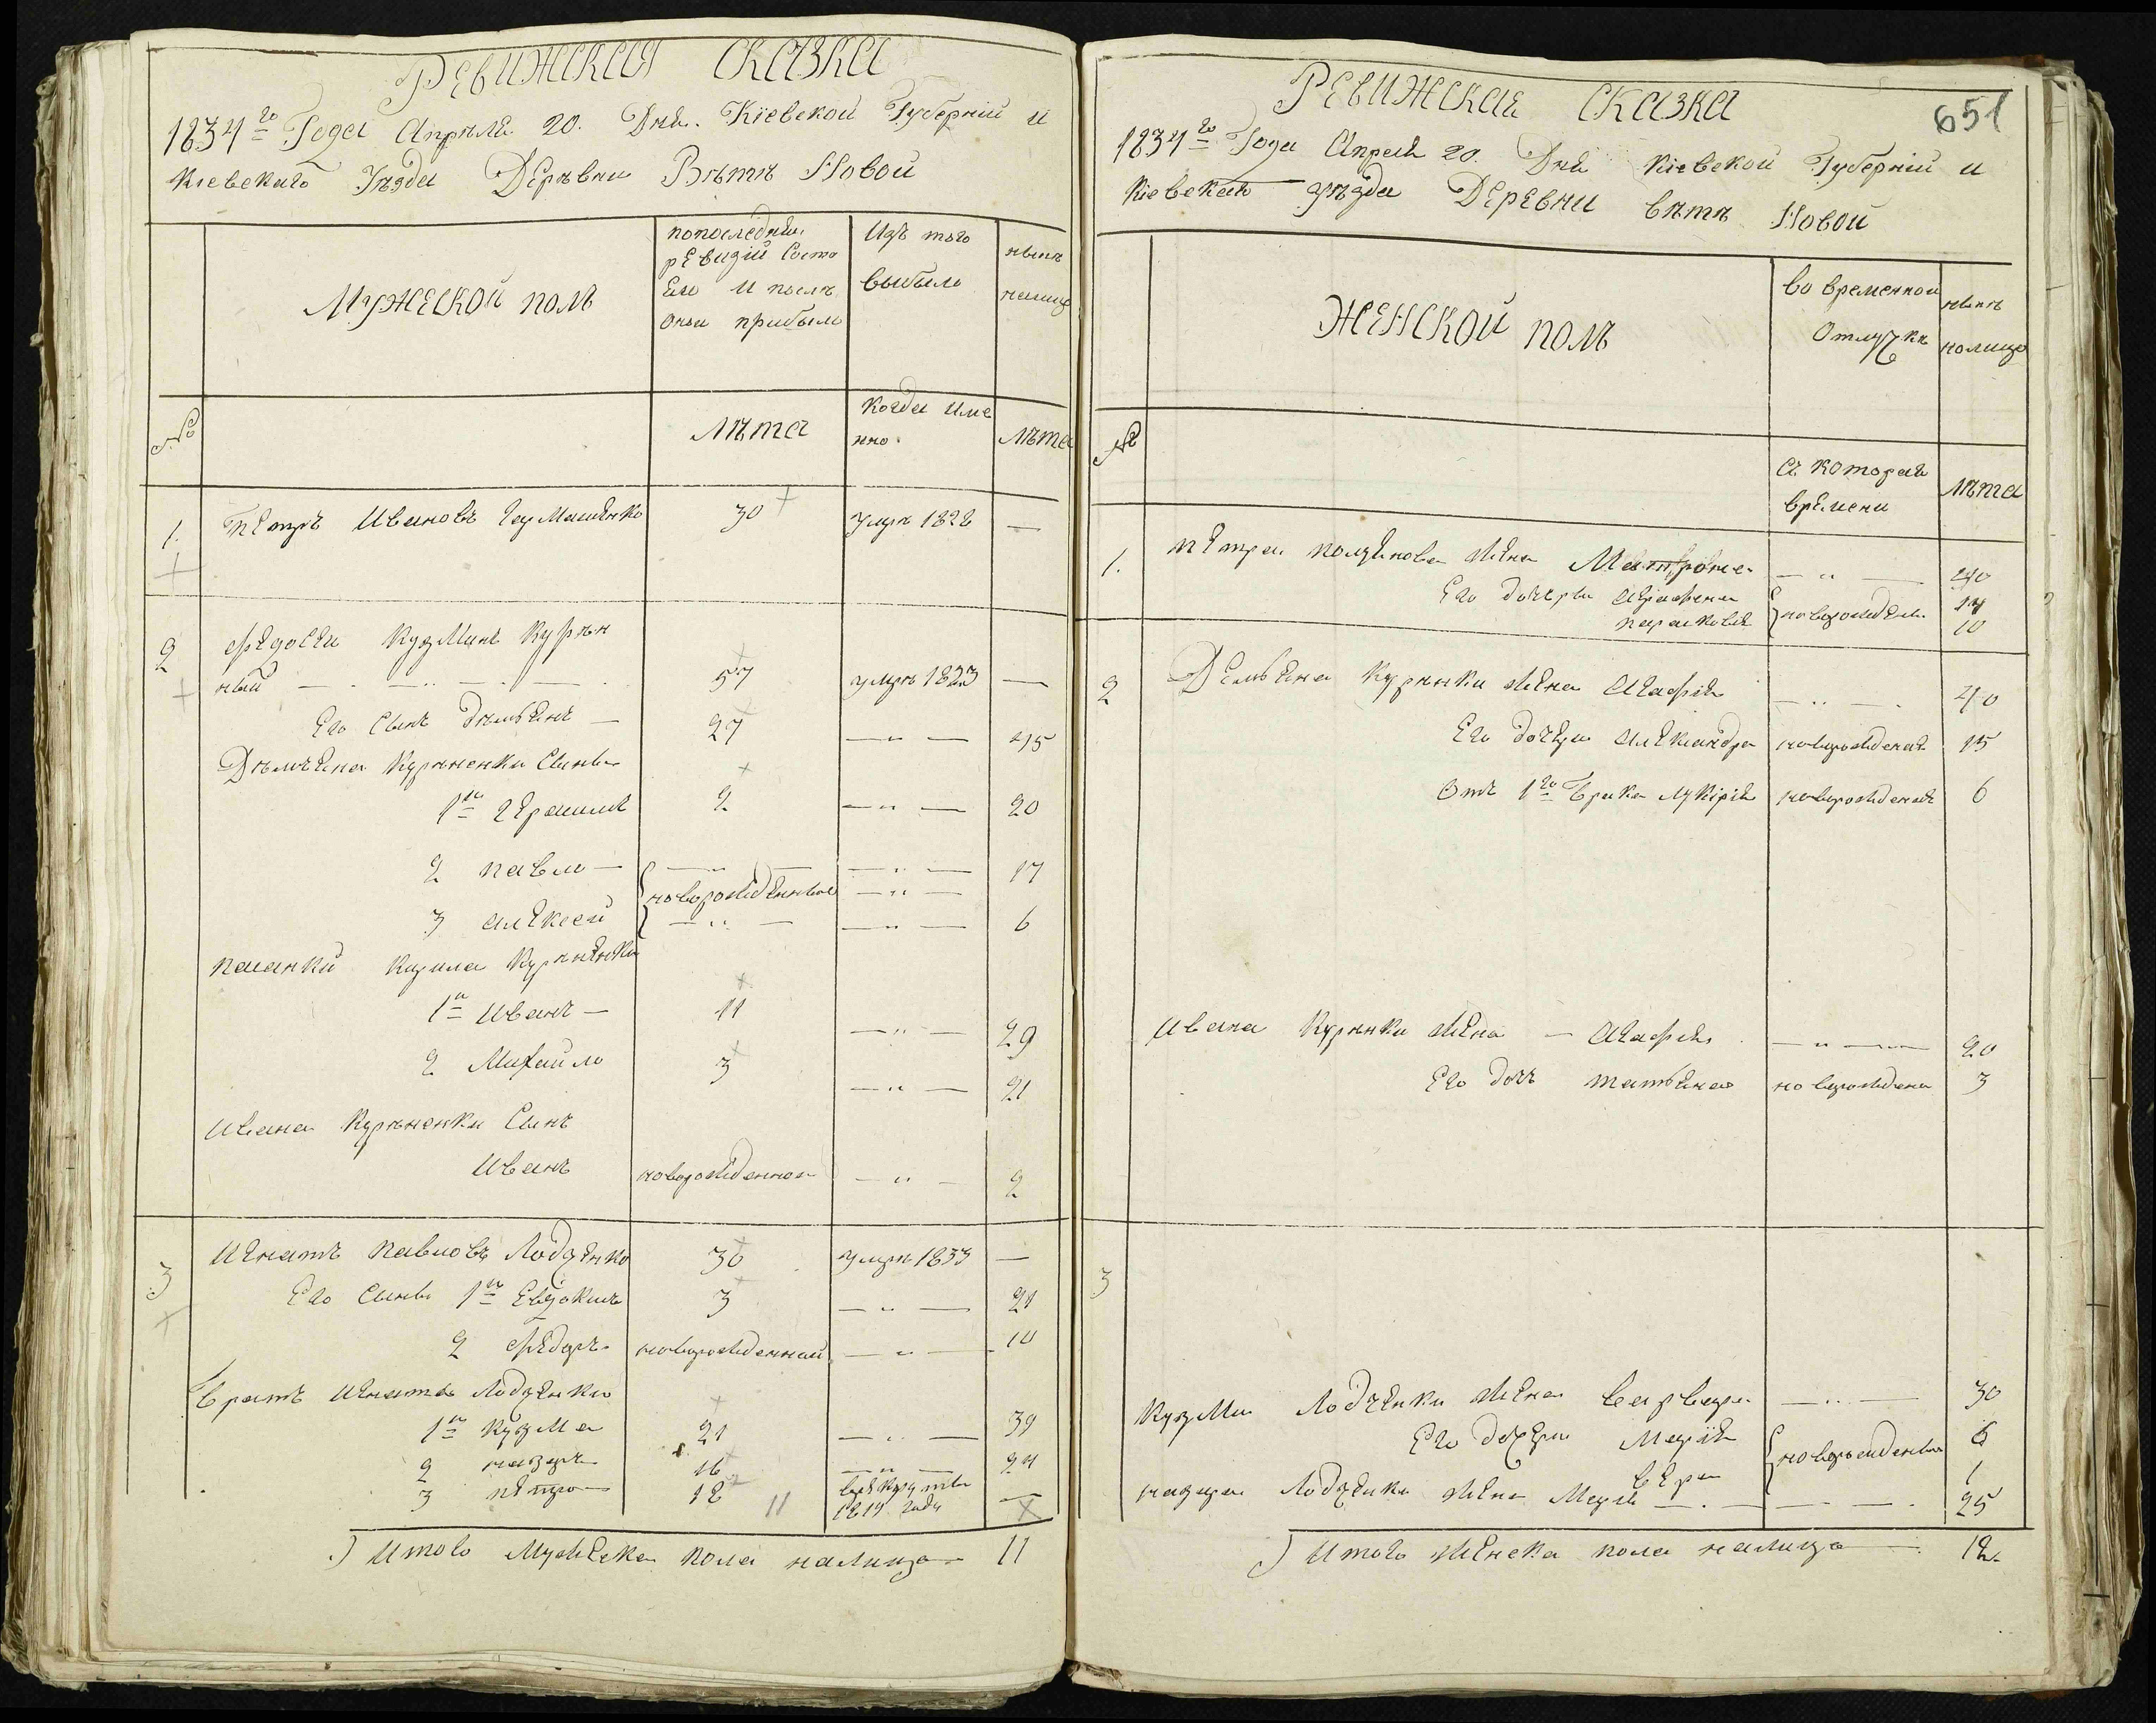 РЕВИЖСКАЯ СКАЗКА
1834го Года Апрѣля 20. Дня. Кіевской Губерніи и
Кіевскаго Уѣзда Дерѣвни Вѣтѣ Новой
Мужеской полъ
попоследней
ревизіи состо
ело и послѣ
оной прибыло
Изъ того
выбыло
нынѣ
налицо
№
Лѣта
когда име
нно
Лѣта
1. Петръ Ивановъ 30 умръ 1828 —
2 Федосей Кузминъ Курѣн
ный 57 умръ 1823 —
Его сынъ Дѣмьенъ — 27 — " — 45
Дѣмьена Курѣненка Сынъ
1й Герасимъ 2 — " — 20
2 павло — — " — — " — 17
новорожденные — " —
3 алексей — " — — " — 6
Кирила Курѣненка
1й Иванъ — 11 — " — 29
2 Михайло 3 — " — 21
Ивана Курѣненка Сынъ
Иванъ новорожденной — " — 2
3 Игнатъ Павловъ Лодзенко 30 умръ 1833 —
Его Сынъ 1й Евдокимъ 3 — " — 21
2 Федоръ новорожденный — " — 10
Братъ Игната Лодзенка
1й Кузма 21 — " — 39
2 назаръ 16 — " —
3 петро 18 11 —
1819 году
Итого Мужеска пола налицо — 11
РЕВИЖСКАЯ СКАЗКА
651
1834го Года Апреля 20. Дня Кіевской Губерніи и
Кіевскаго уѣзда Деревни Вѣтѣ Новой
Женской полъ
во временной
отлучкѣ
нынѣ
налицо
№
съ которая
времени
Лѣта
1. Петра жена Матрона — " — 40
Его дочери Аграфена новорожден. 14
параковія 10
2 Демьена Курѣнки жена Агафія — " — 40
Его дочери Александра новорожденая 15
Отъ 1го брака Лукірія новорожденая 6
Ивана Курѣнки жена — Агафія — " — 20
Его дочь татьена новорождена 3
3
Кузми Лодзенки жена Варвара — " — 30
Его дочери Марія новорожденные 6
Вера 1
назара Лодзенки жена Марія — . — — — . 25
Итого женска пола налицо — 12.